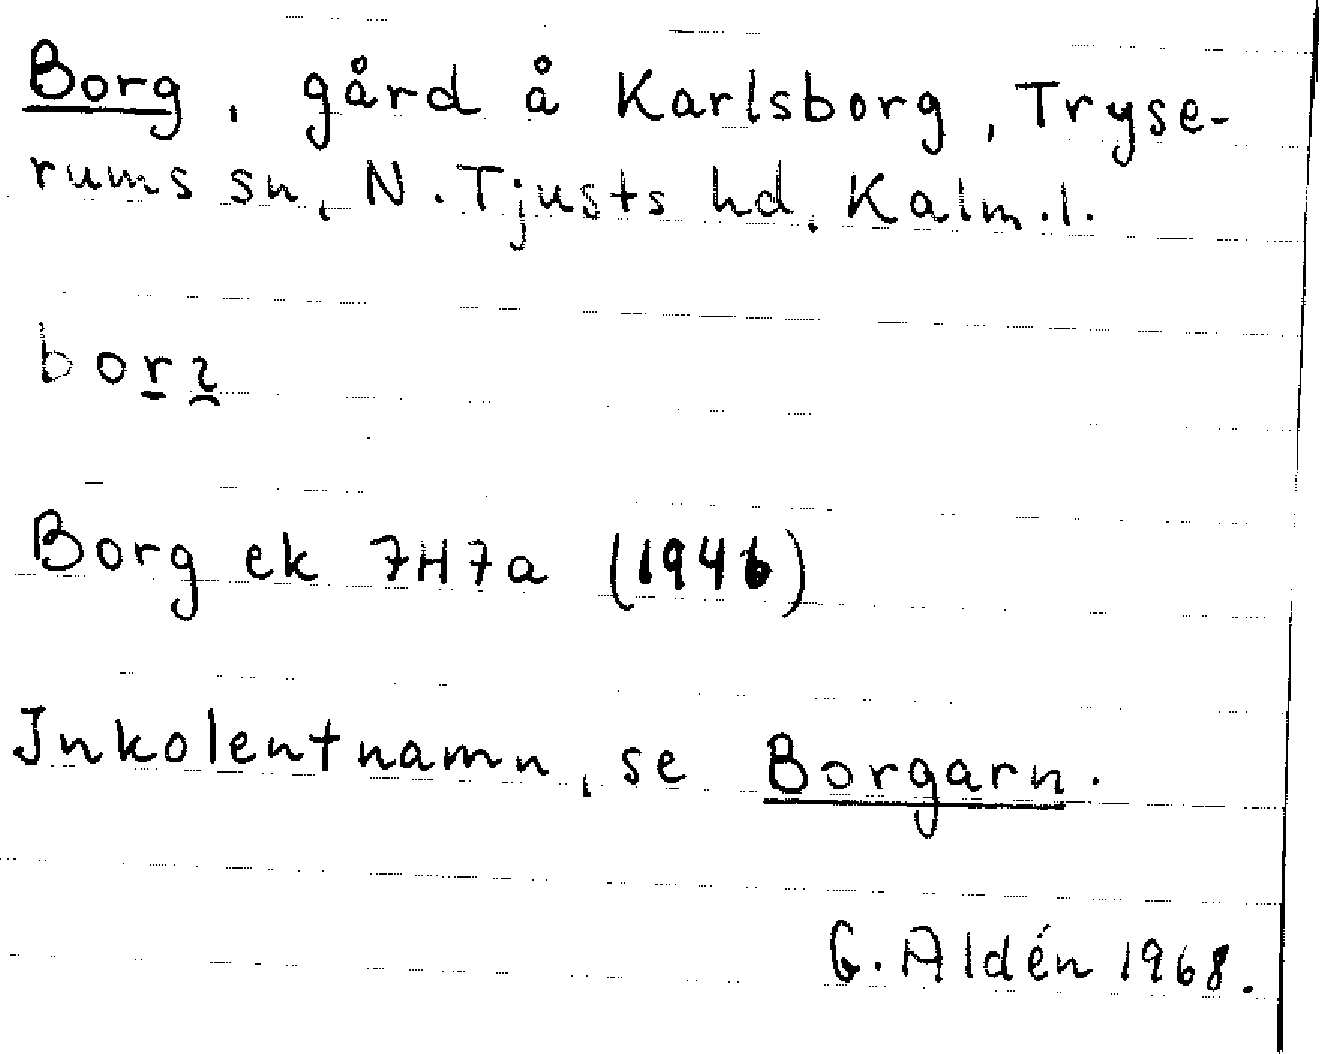 Borg, gård å Karlsborg, Tryse-
rums sn, N. Tjusts hd, Kalm.l.
Borg ek 7H7a (1946)
Inkolentnamn, se Borgarn.
G. Aldén 1968.